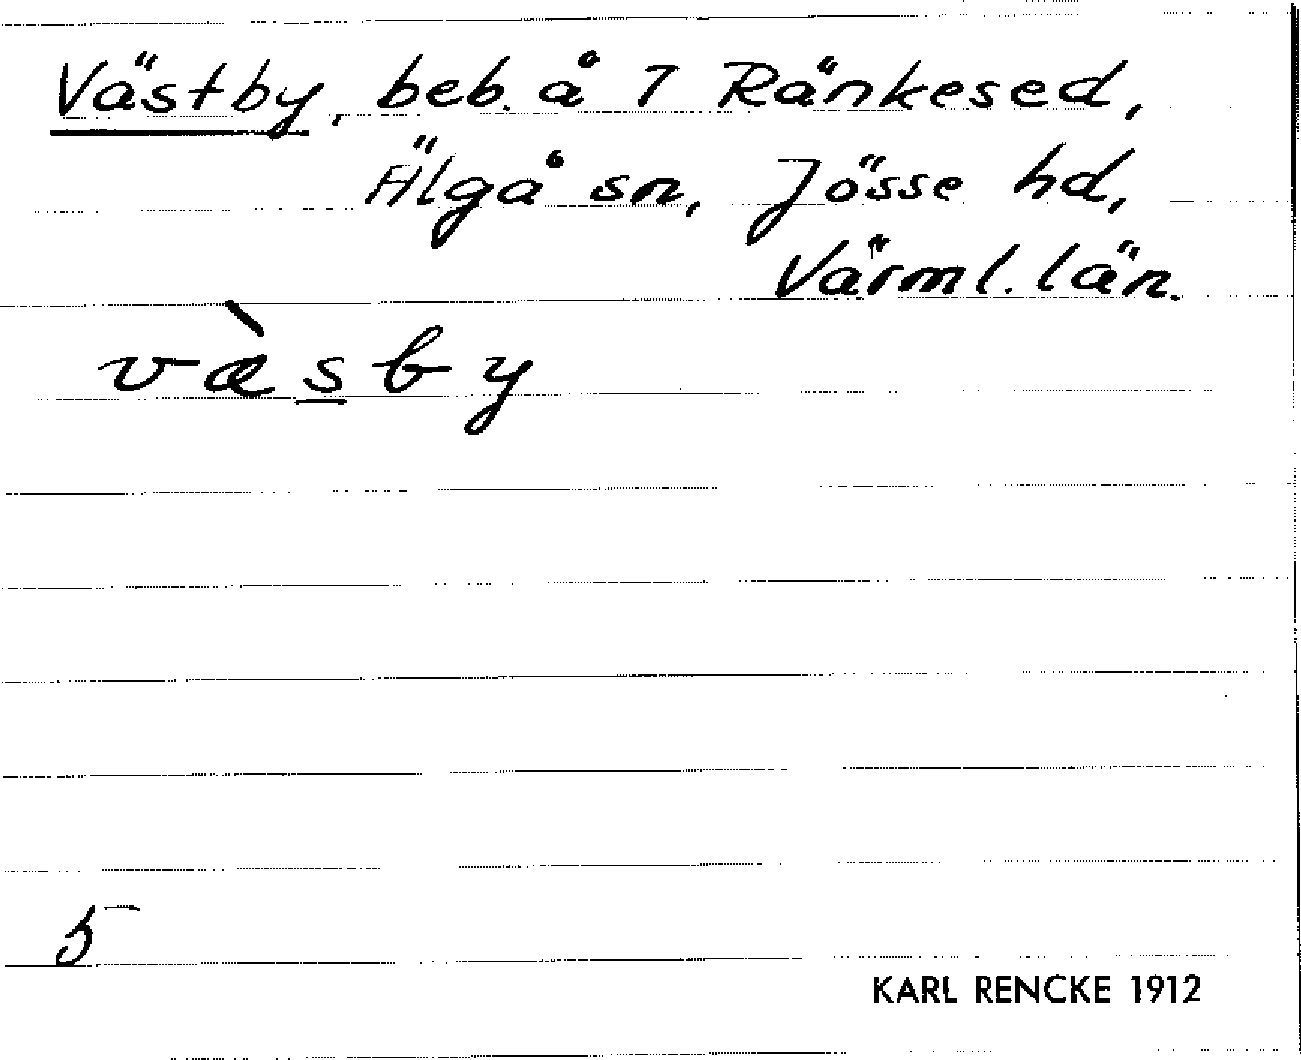 Västby, beb. å 7 Ränkesed,
Älgå sn, Jösse hd,
Värml. län.
væ̀sby
5
KARL RENCKE 1912